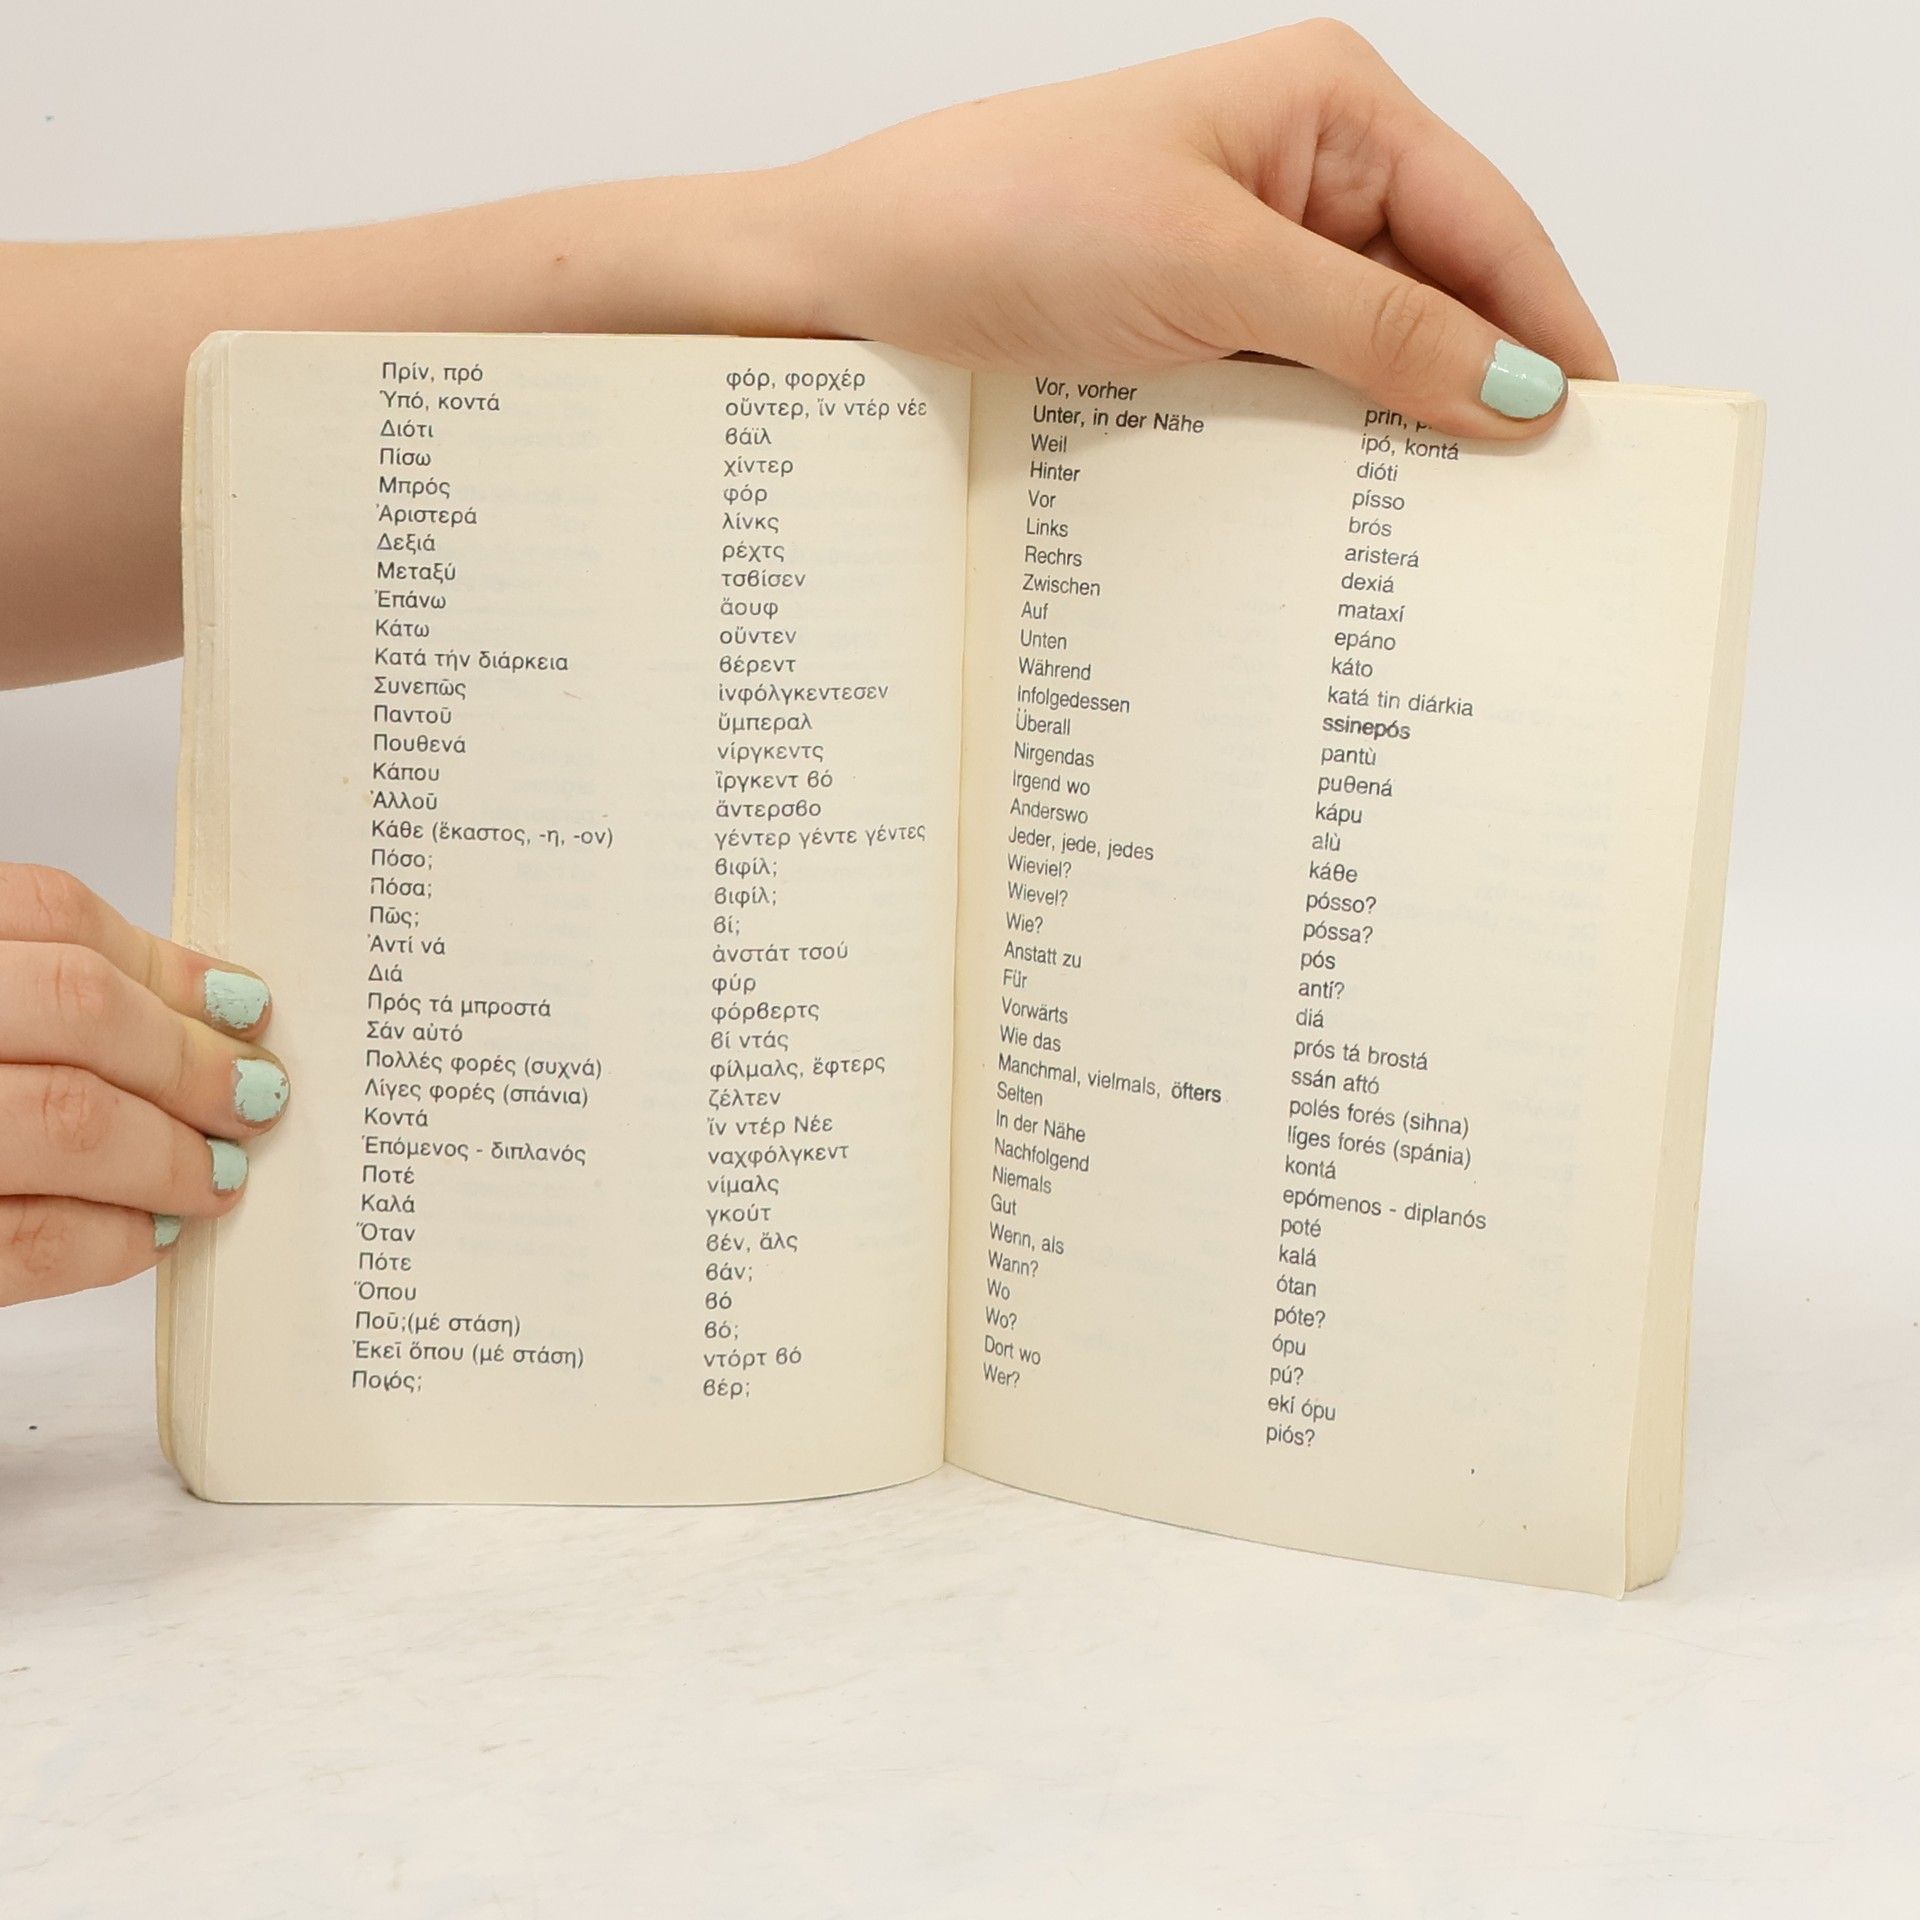 Πρίν, πρό φόρ, φορχέρ
Ὑπό, κοντά οὔντερ, ἴν ντέρ νέε
Διότι βάϊλ
Πίσω χίντερ
Μπρός φόρ
Ἀριστερά λίνκς
Δεξιά ρέχτς
Μεταξύ τσβίσεν
Ἐπάνω ἄουφ
Κάτω οὔντεν
Κατά τήν διάρκεια βέρεντ
Συνεπῶς ἰνφόλγκεντεσεν
Παντοῦ ὔμπεραλ
Πουθενά νίργκεντς
Κάπου ἴργκεντ βό
Ἀλλοῦ ἄντερσβο
Κάθε (ἕκαστος, -η, -ον) γέντερ γέντε γέντες
Πόσο; βιφίλ;
Πόσα; βιφίλ;
Πῶς; βί;
Ἀντί νά ἀνστάτ τσού
Διά φύρ
Πρός τά μπροστά φόρβερτς
Σάν αὐτό βί ντάς
Πολλές φορές (συχνά) φίλμαλς, ἔφτερς
Λίγες φορές (σπάνια) ζέλτεν
Κοντά ἴν ντέρ Νέε
Ἑπόμενος - διπλανός ναχφόλγκεντ
Ποτέ νίμαλς
Καλά γκούτ
Ὅταν βέν, ἄλς
Πότε βάν;
Ὅπου βό
Ποῦ;(μέ στάση) βό;
Ἐκεῖ ὅπου (μέ στάση) ντόρτ βό
Ποιός; βέρ;
Vor, vorher prin,
Unter, in der Nähe ipó, kontá
Weil dióti
Hinter písso
Vor brós
Links aristerá
Rechrs dexiá
Zwischen mataxí
Auf epáno
Unten káto
Während katá tin diárkia
Infolgedessen ssinepós
Überall pantù
Nirgendas puθená
Irgend wo kápu
Anderswo alù
Jeder, jede, jedes káθe
Wieviel? pósso?
Wievel? póssa?
Wie? pós
Anstatt zu antí?
Für diá
Vorwärts prós tá brostá
Wie das ssán aftó
Manchmal, vielmals, öfters polés forés (sihna)
Selten líges forés (spánia)
In der Nähe kontá
Nachfolgend epómenos - diplanós
Niemals poté
Gut kalá
Wenn, als ótan
Wann? póte?
Wo ópu
Wo? pú?
Dort wo ekí ópu
Wer? piós?